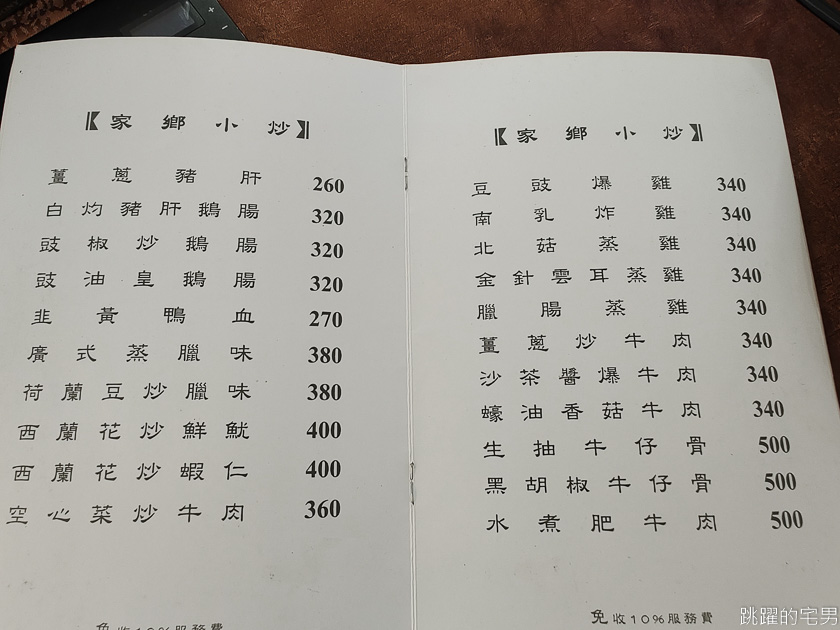 【家鄉小炒】
薑蔥豬肝 260
白灼豬肝鵝腸 320
豉椒炒鵝腸 320
豉油皇鵝腸 320
韭黃鴨血 270
廣式蒸臘味 380
荷蘭豆炒臘味 380
西蘭花炒鮮魷 400
西蘭花炒蝦仁 400
空心菜炒牛肉 360
免收10%服務費
【家鄉小炒】
豆豉爆雞 340
南乳炸雞 340
北菇蒸雞 340
金針雲耳蒸雞 340
臘腸蒸雞 340
薑蔥炒牛肉 340
沙茶醬爆牛肉 340
蠔油香菇牛肉 340
生抽牛仔骨 500
黑胡椒牛仔骨 500
水煮肥牛肉 500
免收10%服務費
跳躍的宅男